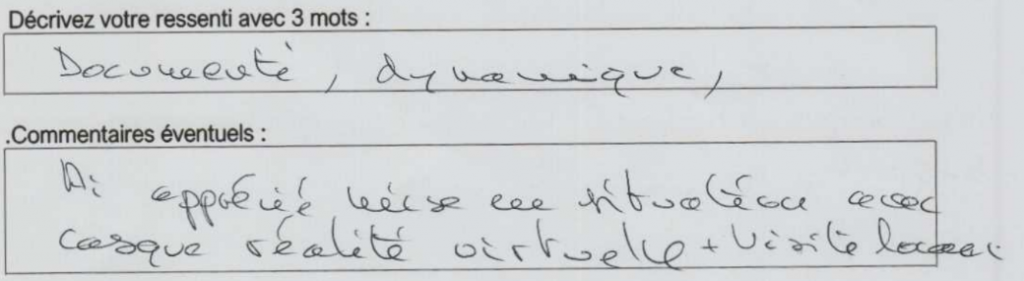 Décrivez votre ressenti avec 3 mots :
Documenté, dynamique,
.Commentaires éventuels :
Ai apprécié mise en situation avec
casque réalité virtuelle + visite locaux